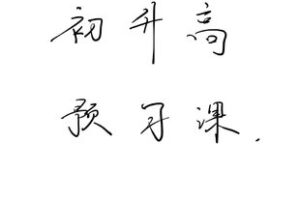 初升高
预习课.